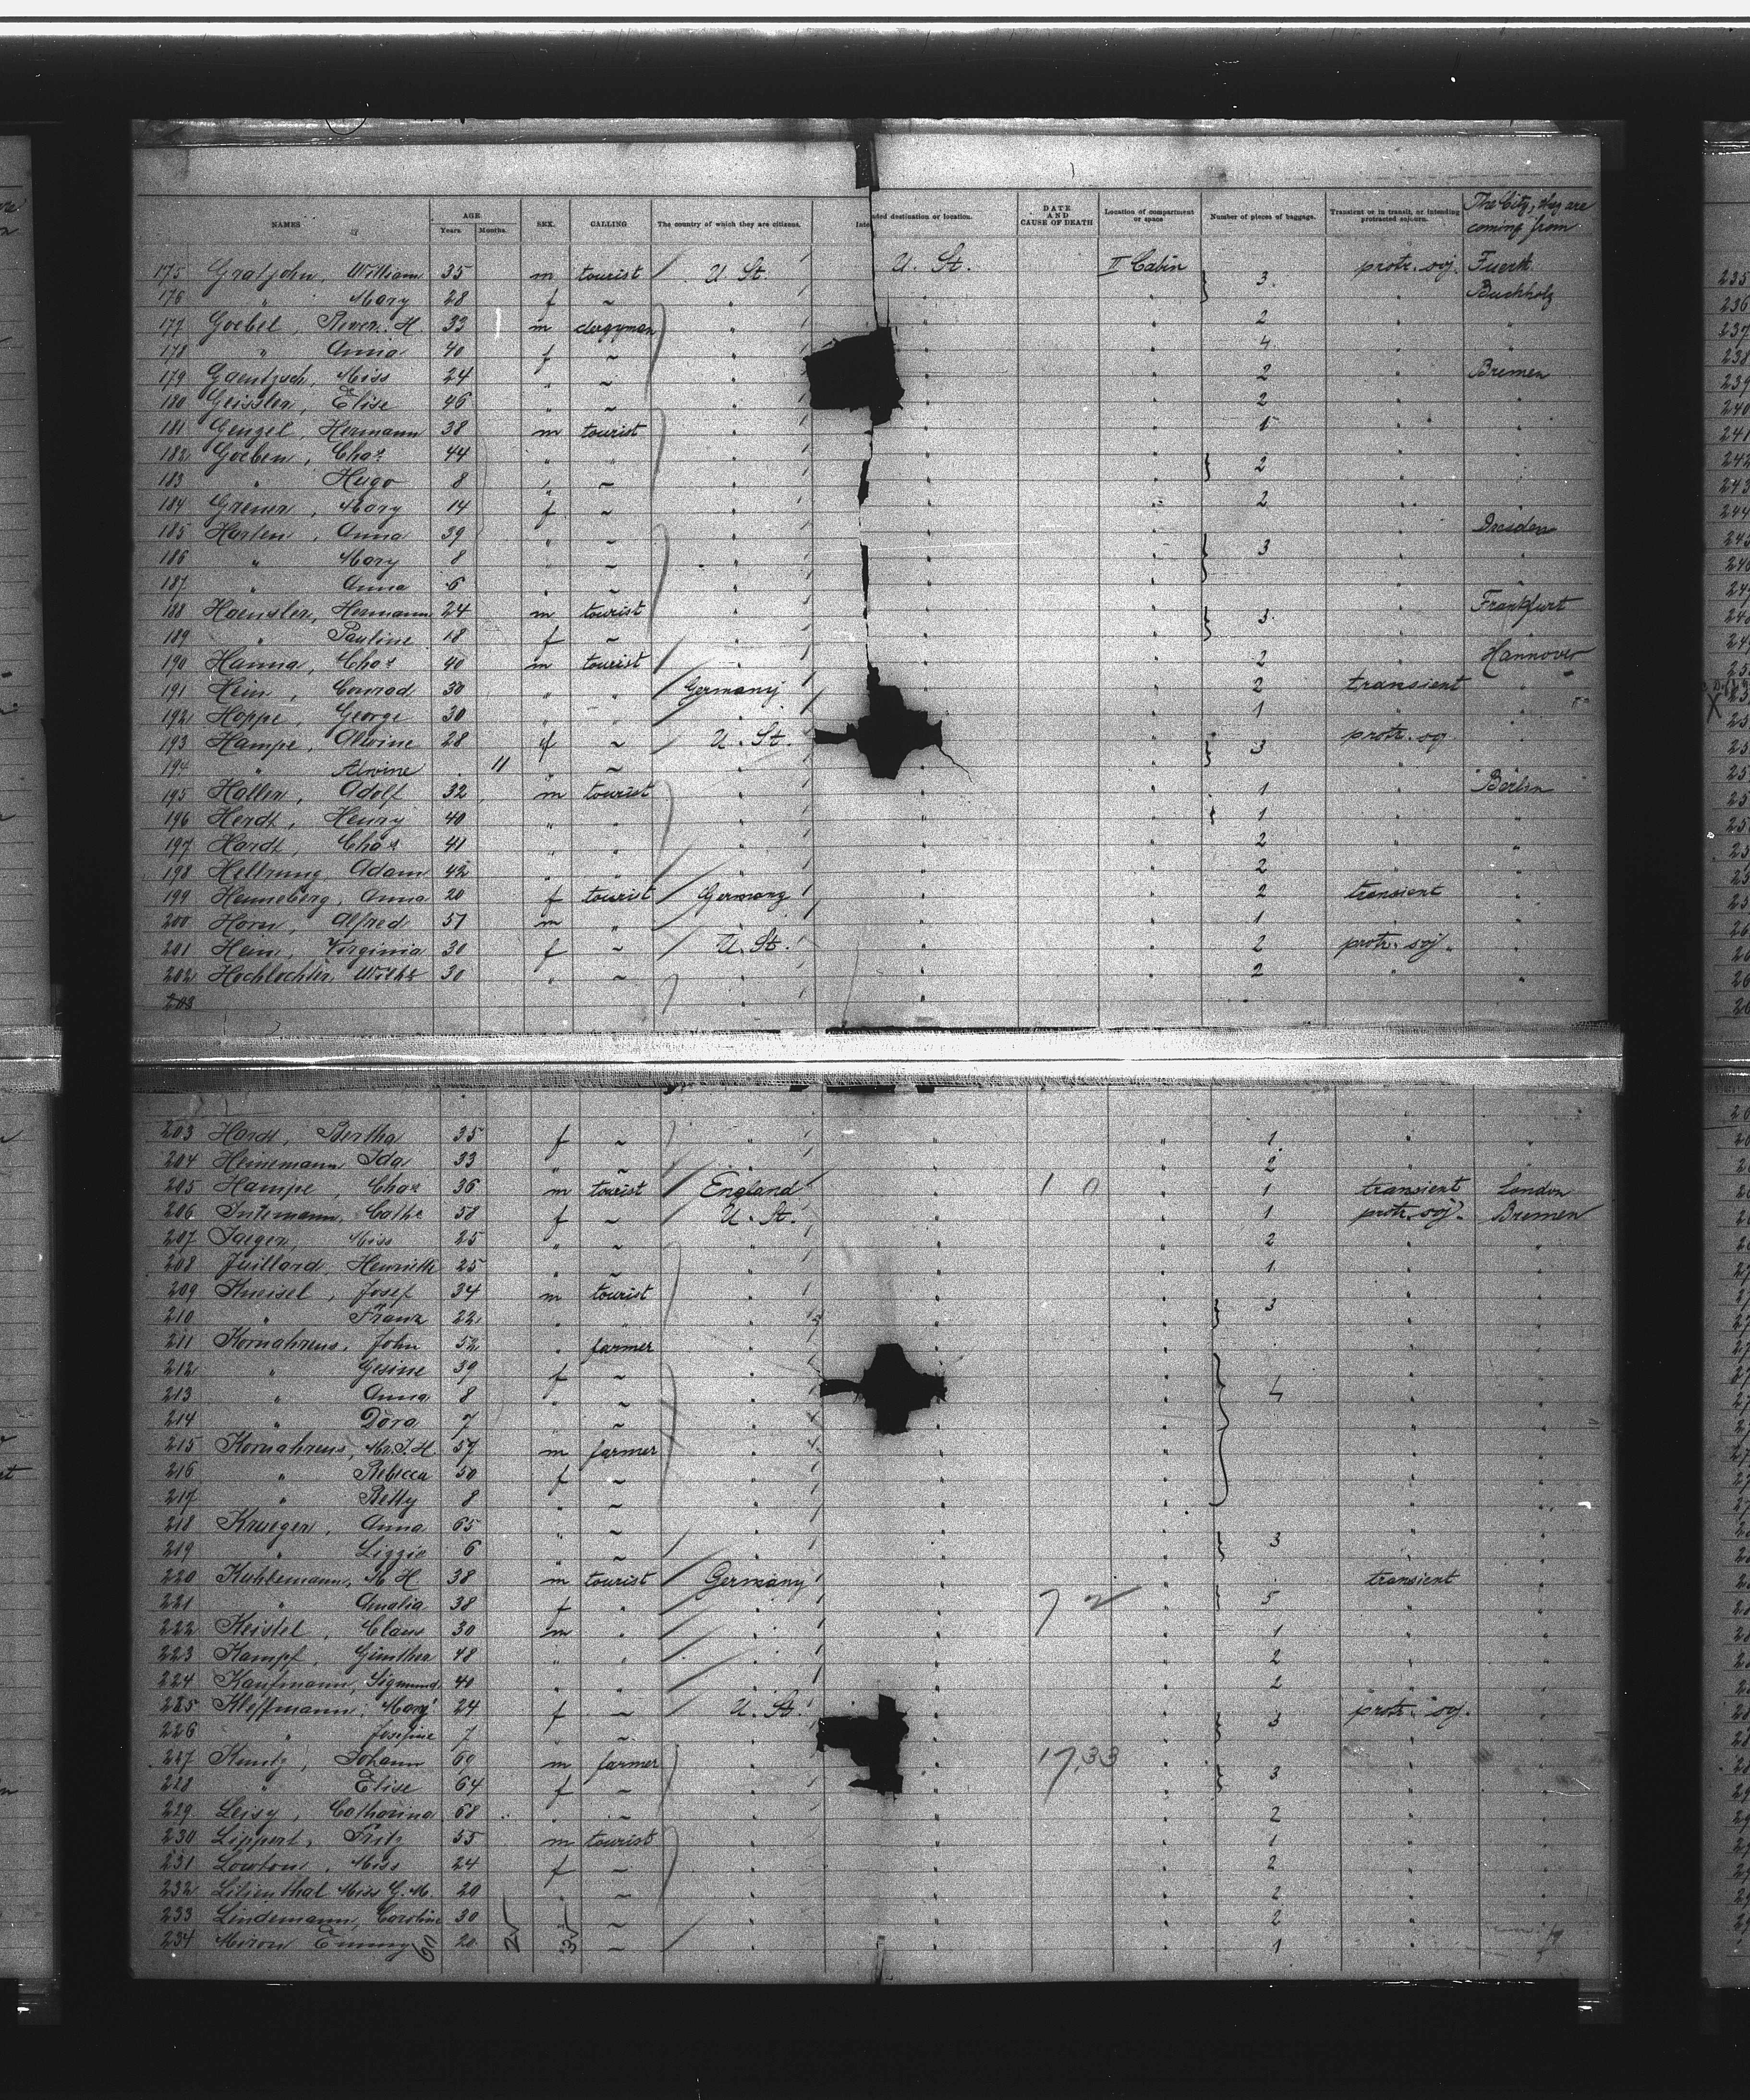 NAMES AGE Years. Months. SEX. CALLING The country of which they are citizens. Intended destination or location. DATE AND CAUSE OF DEATH Location of compartment or space Number of pieces of baggage. Transient or in transit, or intending protracted sojourn. The City, they are coming from
175 Gratjohn, William 35 m tourist U. St. U. St. II Cabin 3 protr. soj. Fuerth
176 " Mary 28 f ~ " " " " Buchholz
177 Goebel, Rever. H. 33 m clergyman " " " 2 " "
178 " Anna 40 f ~ " " " 4 " "
179 Gaentzsch, Miss 24 " ~ " " " 2 " Bremen
180 Geissler, Elise 46 " ~ " " " 2 " "
181 Gengel, Hermann 38 m tourist " " " 1 " "
182 Goeben, Chas 44 " " " " " 2 " "
183 " Hugo 8 " ~ " " " " "
184 Greiner, Mary 14 f ~ " " " 2 " "
185 Harten, Anna 39 " ~ " " " 3 " Dresden
186 " Mary 8 " ~ " " " " "
187 " Anna 6 " ~ " " " " "
188 Haensler, Hermann 24 m tourist " " " 3 " Frankfurt
189 " Pauline 18 f ~ " " " " "
190 Hanna, Chas 40 m tourist " " " 2 " Hannover
191 Hein, Conrad 30 " " Germany " " 2 transient "
192 Hoppe, George 30 " " " " " 1 " "
193 Hampe, Alwine 28 f ~ U. St. " " 3 protr. soj. "
194 " Alwine 11 " ~ " " " " "
195 Haller, Adolf 32 m tourist " " " 1 " Berlin
196 Herdt, Henry 40 " " " " " 1 " "
197 Hardt, Chas 41 " " " " " 2 " "
198 Hellrung, Adam 42 " " " " " 2 " "
199 Henneberg, Anna 20 f tourist Germany " " 2 transient "
200 Horn, Alfred 51 m " " " " 1 " "
201 Hein, Virginia 30 f ~ U. St. " " 2 protr. soj. "
202 Hochlochter, Wilh. 30 " ~ " " " 2 " "
203
203 Hardt, Bertha 35 f ~ " " " 1 " "
204 Heinemann, Ida 33 " ~ " " " 2 " "
205 Hampe, Chas 36 m tourist England " 1 0 " 1 transient London
206 Intemann, Cathe 58 f ~ U. St. " " 1 protr. soj. Bremen
207 Jaeger, Miss 25 " ~ " " " 2 " "
208 Juillard, Henriette 25 " ~ " " " 1 " "
209 Kneisel, Josef 34 m tourist " " " 3 " "
210 " Franz 22 " " " " " " "
211 Kornahrens, John 52 " farmer " " " " "
212 " Gesine 39 f ~ " " " 4 " "
213 " Anna 8 " ~ " " " " "
214 " Dora 7 " ~ " " " " "
215 Kornahrens, Mr. J. H. 57 m farmer " " " " "
216 " Rebecca 50 f ~ " " " " "
217 " Betty 8 " ~ " " " " "
218 Krueger, Anna 65 " ~ " " " 3 " "
219 " Lizzie 6 " ~ " " " " "
220 Kuhlemann, H. 38 m tourist Germany " " 5 transient "
221 " Amalia 38 f " " " 7 2 " " "
222 Keistel, Claus 30 m " " " " 1 " "
223 Kampf, Günther 48 " " " " " 2 " "
224 Kaufmann, Sigmund 40 " " " " " 2 " "
225 Kleffmann, Mary 24 f ~ U. St. " " 3 protr. soj. "
226 " Josefine 7 " ~ " " " " "
227 Kuntz, Johann 60 m farmer " " 17,33 " 3 " "
228 " Elise 64 f ~ " " " " "
229 Leisy, Catharina 68 " ~ " " " 2 " "
230 Lippert, Fritz 55 m tourist " " " 1 " "
231 Lowton, Miss 24 f ~ " " " 2 " "
232 Lilienthal Miss G. M. 20 " ~ " " " 2 " "
233 Lindemann, Caroline 30 " ~ " " " 2 " "
234 Miron Emmy 20 " ~ " " " 1 " "